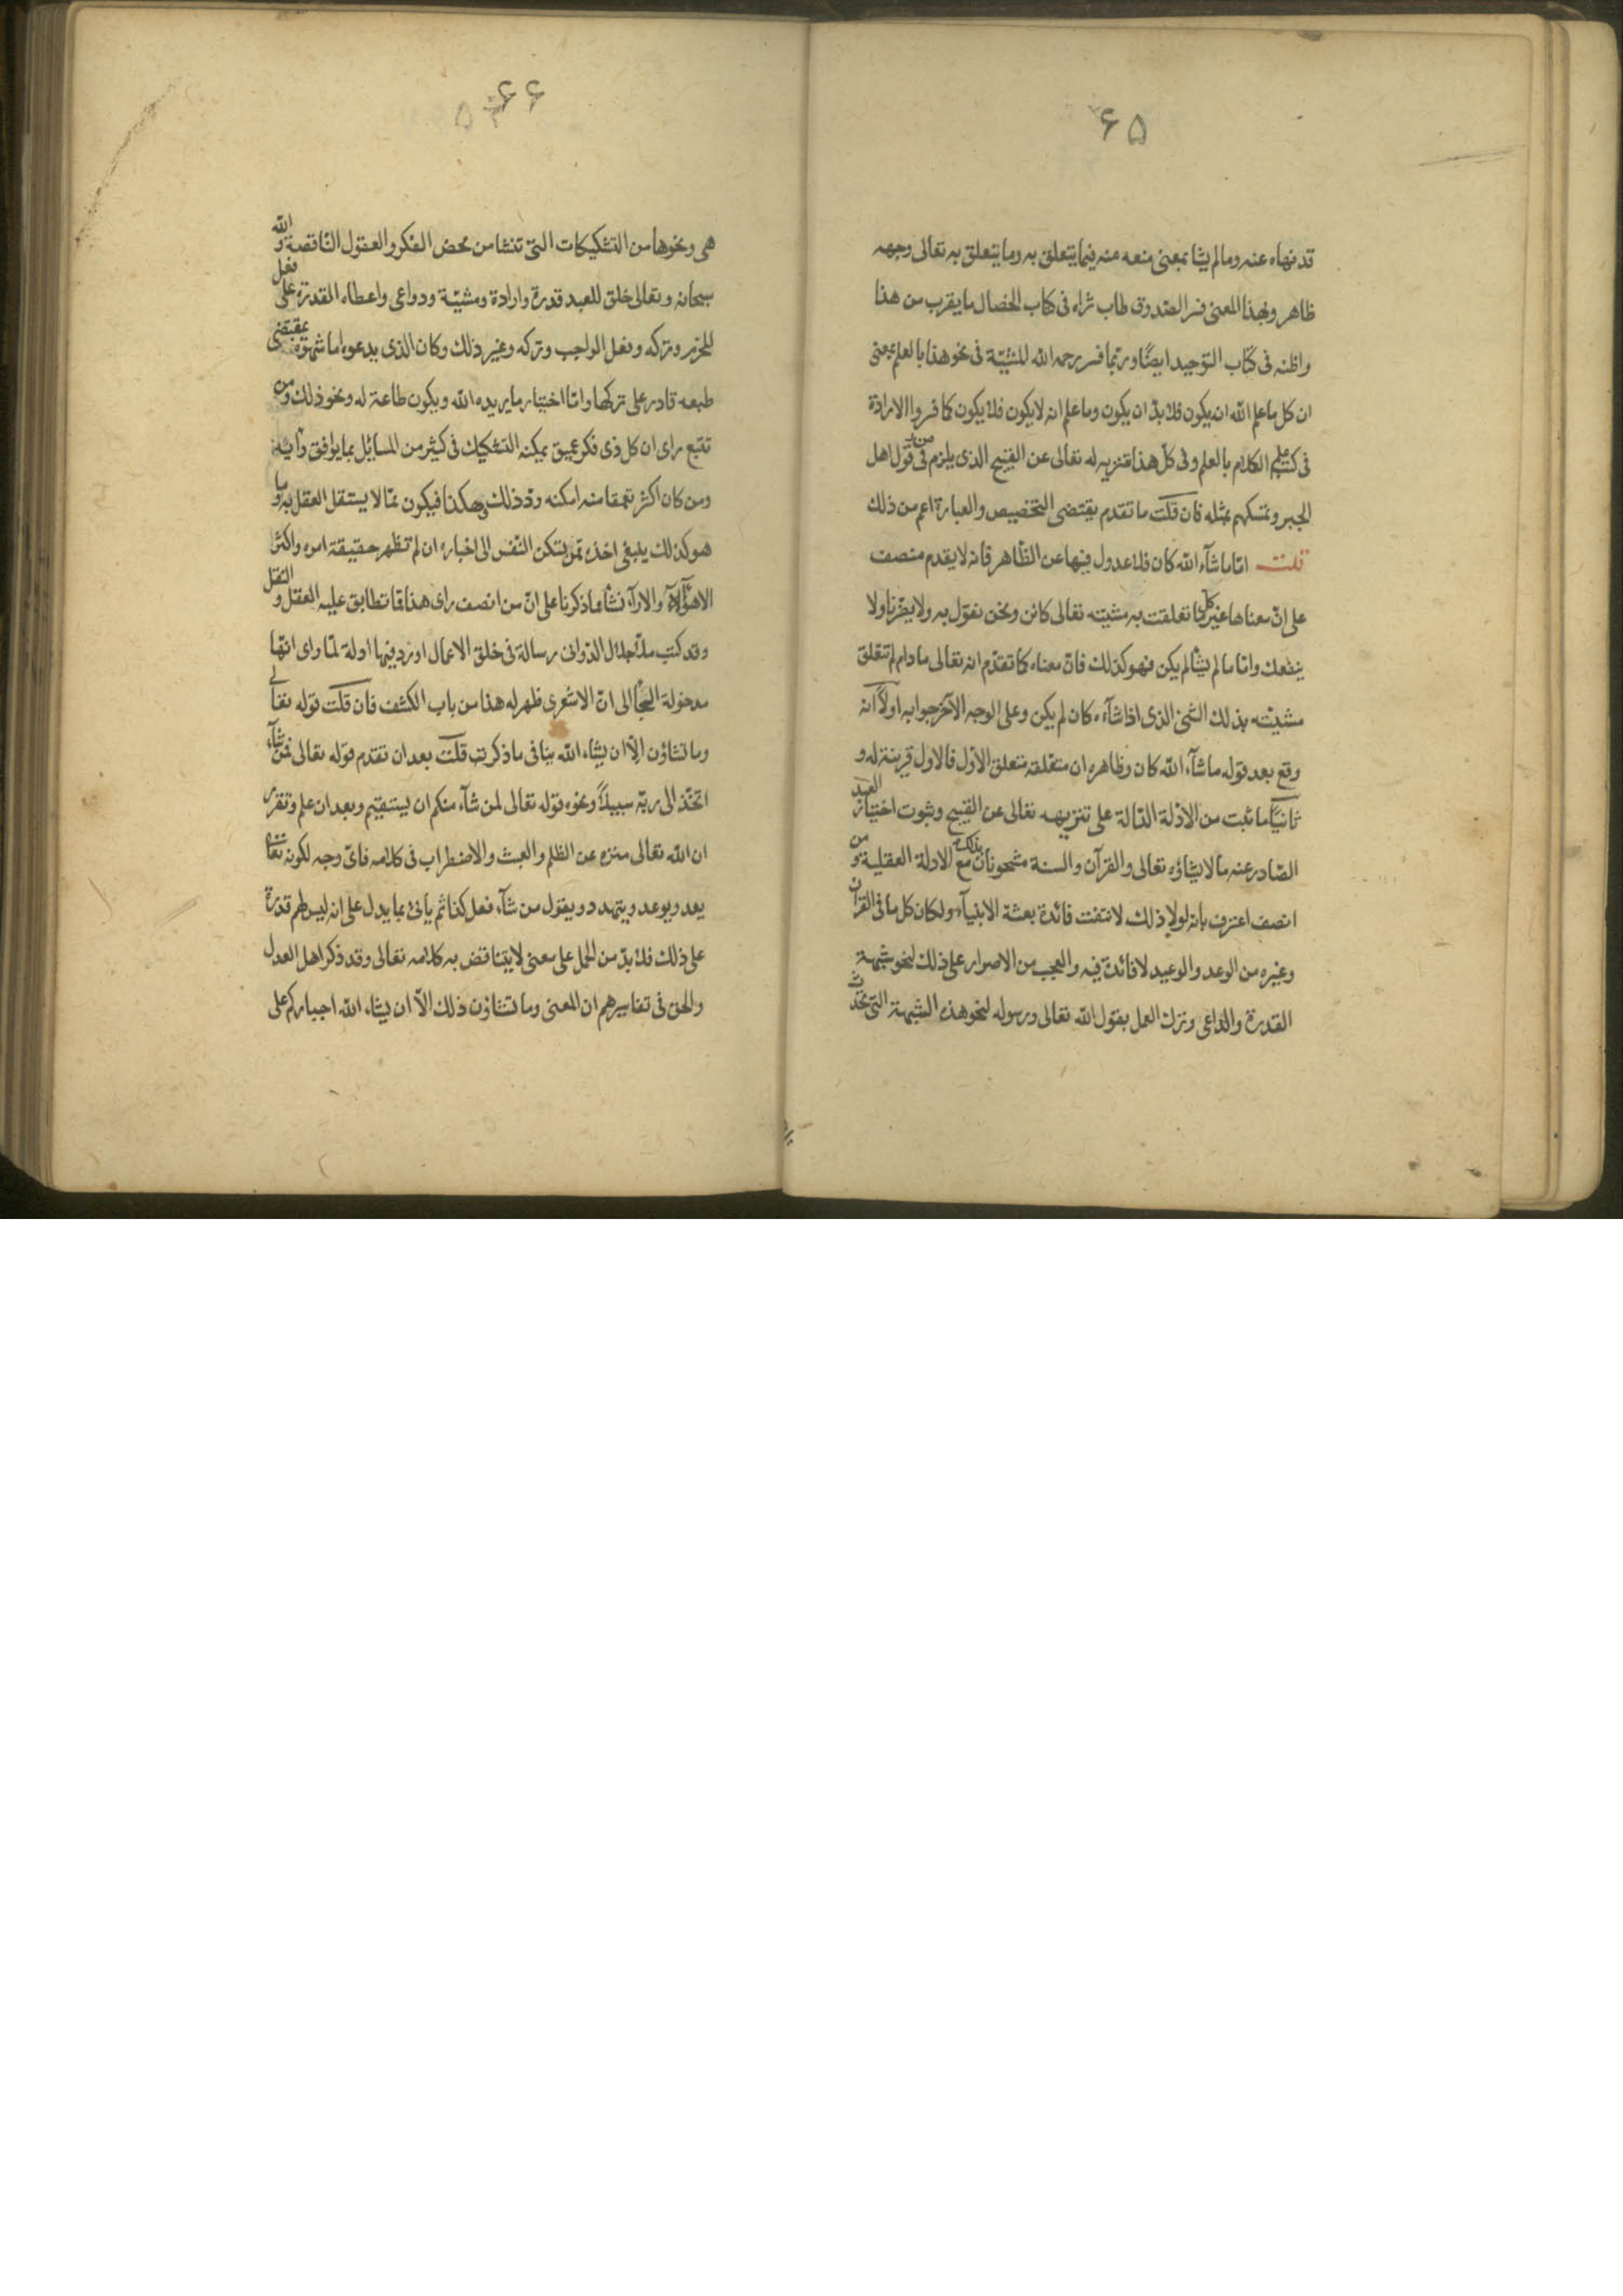 ۶۵
قد نهاه عنه وما لم يشا بمعنى منعه منه فيما يتعلق به وما يتعلق به تعالى وجهه
ظاهر وبهذا المعنى فسر الصدوق طاب ثراه فى كتاب الخصال ما يقرب من هذا
واظنه فى كتاب التوحيد ايضًا وربّما فسر رحمه الله المشيّة فى نحو هذا بالعلم بمعنى
ان كل ما علم الله ان يكون فلا بدّ ان يكون وما علم انه لا يكون فلا يكون كما فسروا الارادة
فى كتب علم الكلام بالعلم وفى كلّ هذا تنزيه له تعالى عن القبيح الذى يلزم من فى قول اهل
الجبر وتمسكهم بمثله فان قلت ما تقدم يقتضى التخصيص والعبارة اعم من ذلك
قلت امّا ما شآء الله كان فلا عدول فيها عن الظّاهر فانه لا يقدم منصف
على انّ معناها غير كل ما تعلقت به مشيته تعالى كائن ونحن نقول به ولا يضّرنا ولا
ينفعك وامّا ما لم يشا لم يكن فهو كذلك فانّ معناه كما تقدّم انه تعالى ما دام لم تتعلق
مشيّته بذلك الشئ الذى اذا شآءه كان لم يكن وعلى الوجه الآخر جوابه اولاً انه
وقع بعد قوله ما شآء الله كان وظاهره ان متعلقه متعلق الاوّل فالاول قرينة له و
ثانيًا ما ثبت من الادّلة الدّالة على تنزيهه تعالى عن القبيح وثبوت اختيار العبد
الصّادر عنه ما لا يشاؤه تعالى والقرآن والسنة مشحونان بذلك مع الادلة العقلية ومن
انصف اعترف بانه لولا ذلك لانتفت فائدة بعثة الانبيآء ولكان كل ما فى القرآن
وغيره من الوعد والوعيد لا فائدة فيه والعجب من الاصرار على ذلك لنحو شبهة
القدرة والداعى وترك العمل بقول الله تعالى ورسوله لنحو هذه الشبهة التى تحدث
۶۶
هى ونحوها من التشكيكات التى تنشا من محض الفكر والعقول الناقصة والله
سبحانه وتعالى خلق للعبد قدرة وارادة ومشيّة ودواعى واعطاه القدرة على فعل
وتركه وفعل الواجب وتركه وغير ذلك وكان الذى يدعوه اما شهوة بمقتضى
طبعه قادر على تركها وامّا اختيار ما يريده الله ويكون طاعة له ونحو ذلك ومن
تتبع راى ان كل ذى فكر عميق يمكنه التشكيك فى كثير من المسائل بما يوافق رأيه
ومن كان اكثر تعمقا منه امكنه ردّ ذلك وهكذا فيكون ممّا لا يستقل العقل به وما
هو كذلك ينبغى اخذه ممن تسكن النّفس الى اخباره ان لم تظهر حقيقة امره واكثر
الاهوآء والارآء نشأ مما ذكرنا على انّ من انصف راى هذا ممّا تطابق عليه العقل والنقل
وقد كتب ملاّ جلال الدّوانى رسالة فى خلق الاعمال اورد فيها ادلة لمّا راى انّها
مدخولة التجأ الى انّ الاشعرى ظهر له هذا من باب الكشف فان قلت قوله تعالى
وما تشاؤن الاّ ان يشاء الله ينافى ما ذكرت قلت بعد ان تقدم قوله تعالى فمن شآء
اتخذ الى ربّه سبيلاً ونحوه قوله تعالى لمن شآء منكم ان يستقيم وبعد ان علم وتقرر
ان الله تعالى منزه عن الظلم والعبث والاضطراب فى كلامه فاىّ وجه لكونه تعالى
يعد ويوعد ويتهدد ويقول من شآء فعل كذا ثم يأتى بما يدل على انه ليس لهم قدرة
على ذلك فلا بدّ من الحمل على معنى لا يتناقض به كلامه تعالى وقد ذكر اهل العدل
والحق فى تفاسيرهم ان المعنى وما تشاؤن ذلك الاّ ان يشاء الله اجباركم على